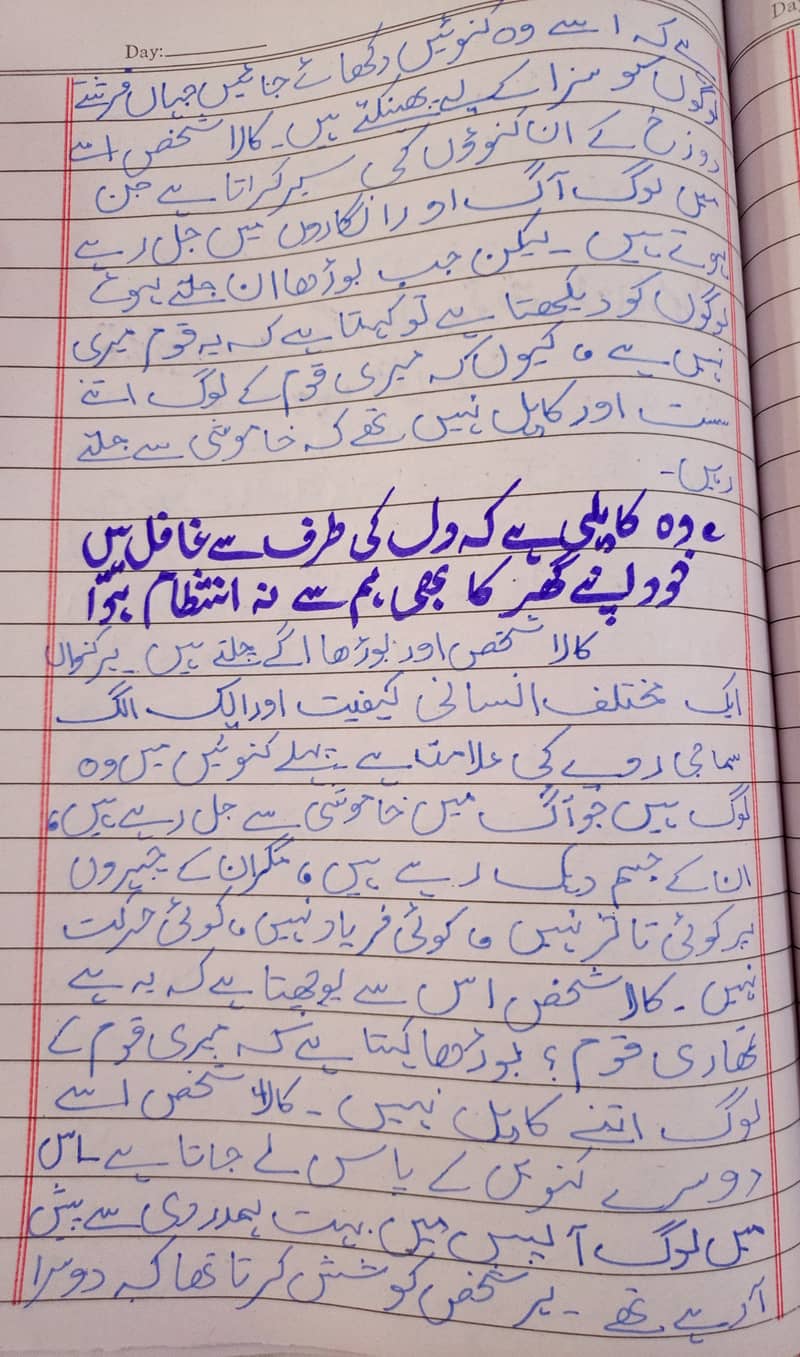 Day:
ہے کہ اسے وہ کنوئیں دکھائے جائیں جہاں فرشتے
لوگوں کو سزا کے لیے پھینکتے ہیں۔ کالا شخص اسے
دوزخ کے ان کنوؤں کی سیر کراتا ہے جن
میں لوگ آگ اور انگاروں میں جل رہے
ہوتے ہیں۔ لیکن جب بوڑھا ان جلتے ہوئے
لوگوں کو دیکھتا ہے تو کہتا ہے کہ یہ قوم میری
نہیں ہے، کیوں کہ میری قوم کے لوگ اتنے
سست اور کاہل نہیں تھے کہ خاموشی سے جلتے
رہیں۔
ے وہ کاہلی ہے کہ دل کی طرف سے غافل ہیں
خود اپنے گھر کا بھی ہم سے نہ انتظام ہوا
کالا شخص اور بوڑھا آگے چلتے ہیں۔ ہر کنواں
ایک مختلف انسانی کیفیت اور ایک الگ
سماجی رویے کی علامت ہے پہلے کنوئیں میں وہ
لوگ ہیں جو آگ میں خاموشی سے جل رہے ہیں،
ان کے جسم دہک رہے ہیں، مگر ان کے چہروں
پر کوئی تاثر نہیں، کوئی فریاد نہیں، کوئی حرکت
نہیں۔ کالا شخص اس سے پوچھتا ہے کہ یہ ہے
تمھاری قوم؟ بوڑھا کہتا ہے کہ میری قوم کے
لوگ اتنے کاہل نہیں۔ کالا شخص اسے
دوسرے کنویں کے پاس لے جاتا ہے اس
میں لوگ آپس میں بہت ہمدردی سے پیش
آرہے تھے۔ ہر شخص کوشش کرتا تھا کہ دوسرا